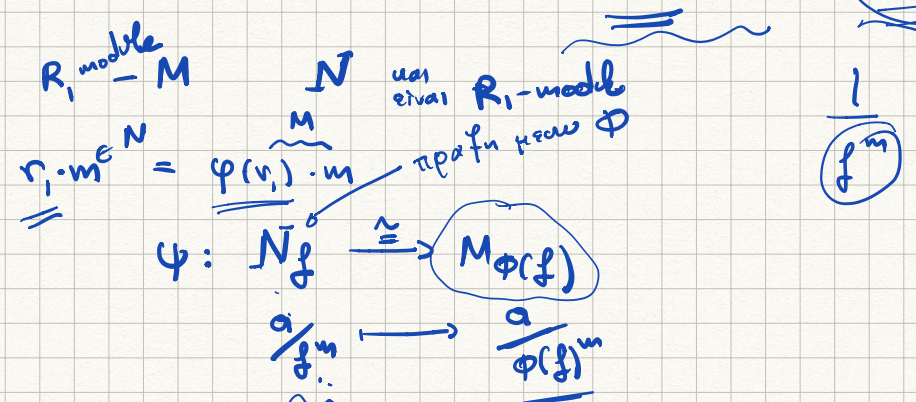 R₁ module – M N και είναι R₁-module
r₁·m ∈ N = φ(r₁)·m M πράξη μέσω Φ
ψ : N_f ≅→ M_Φ(f)
a/f^m ⟼ a/Φ(f)^m
1/f^m